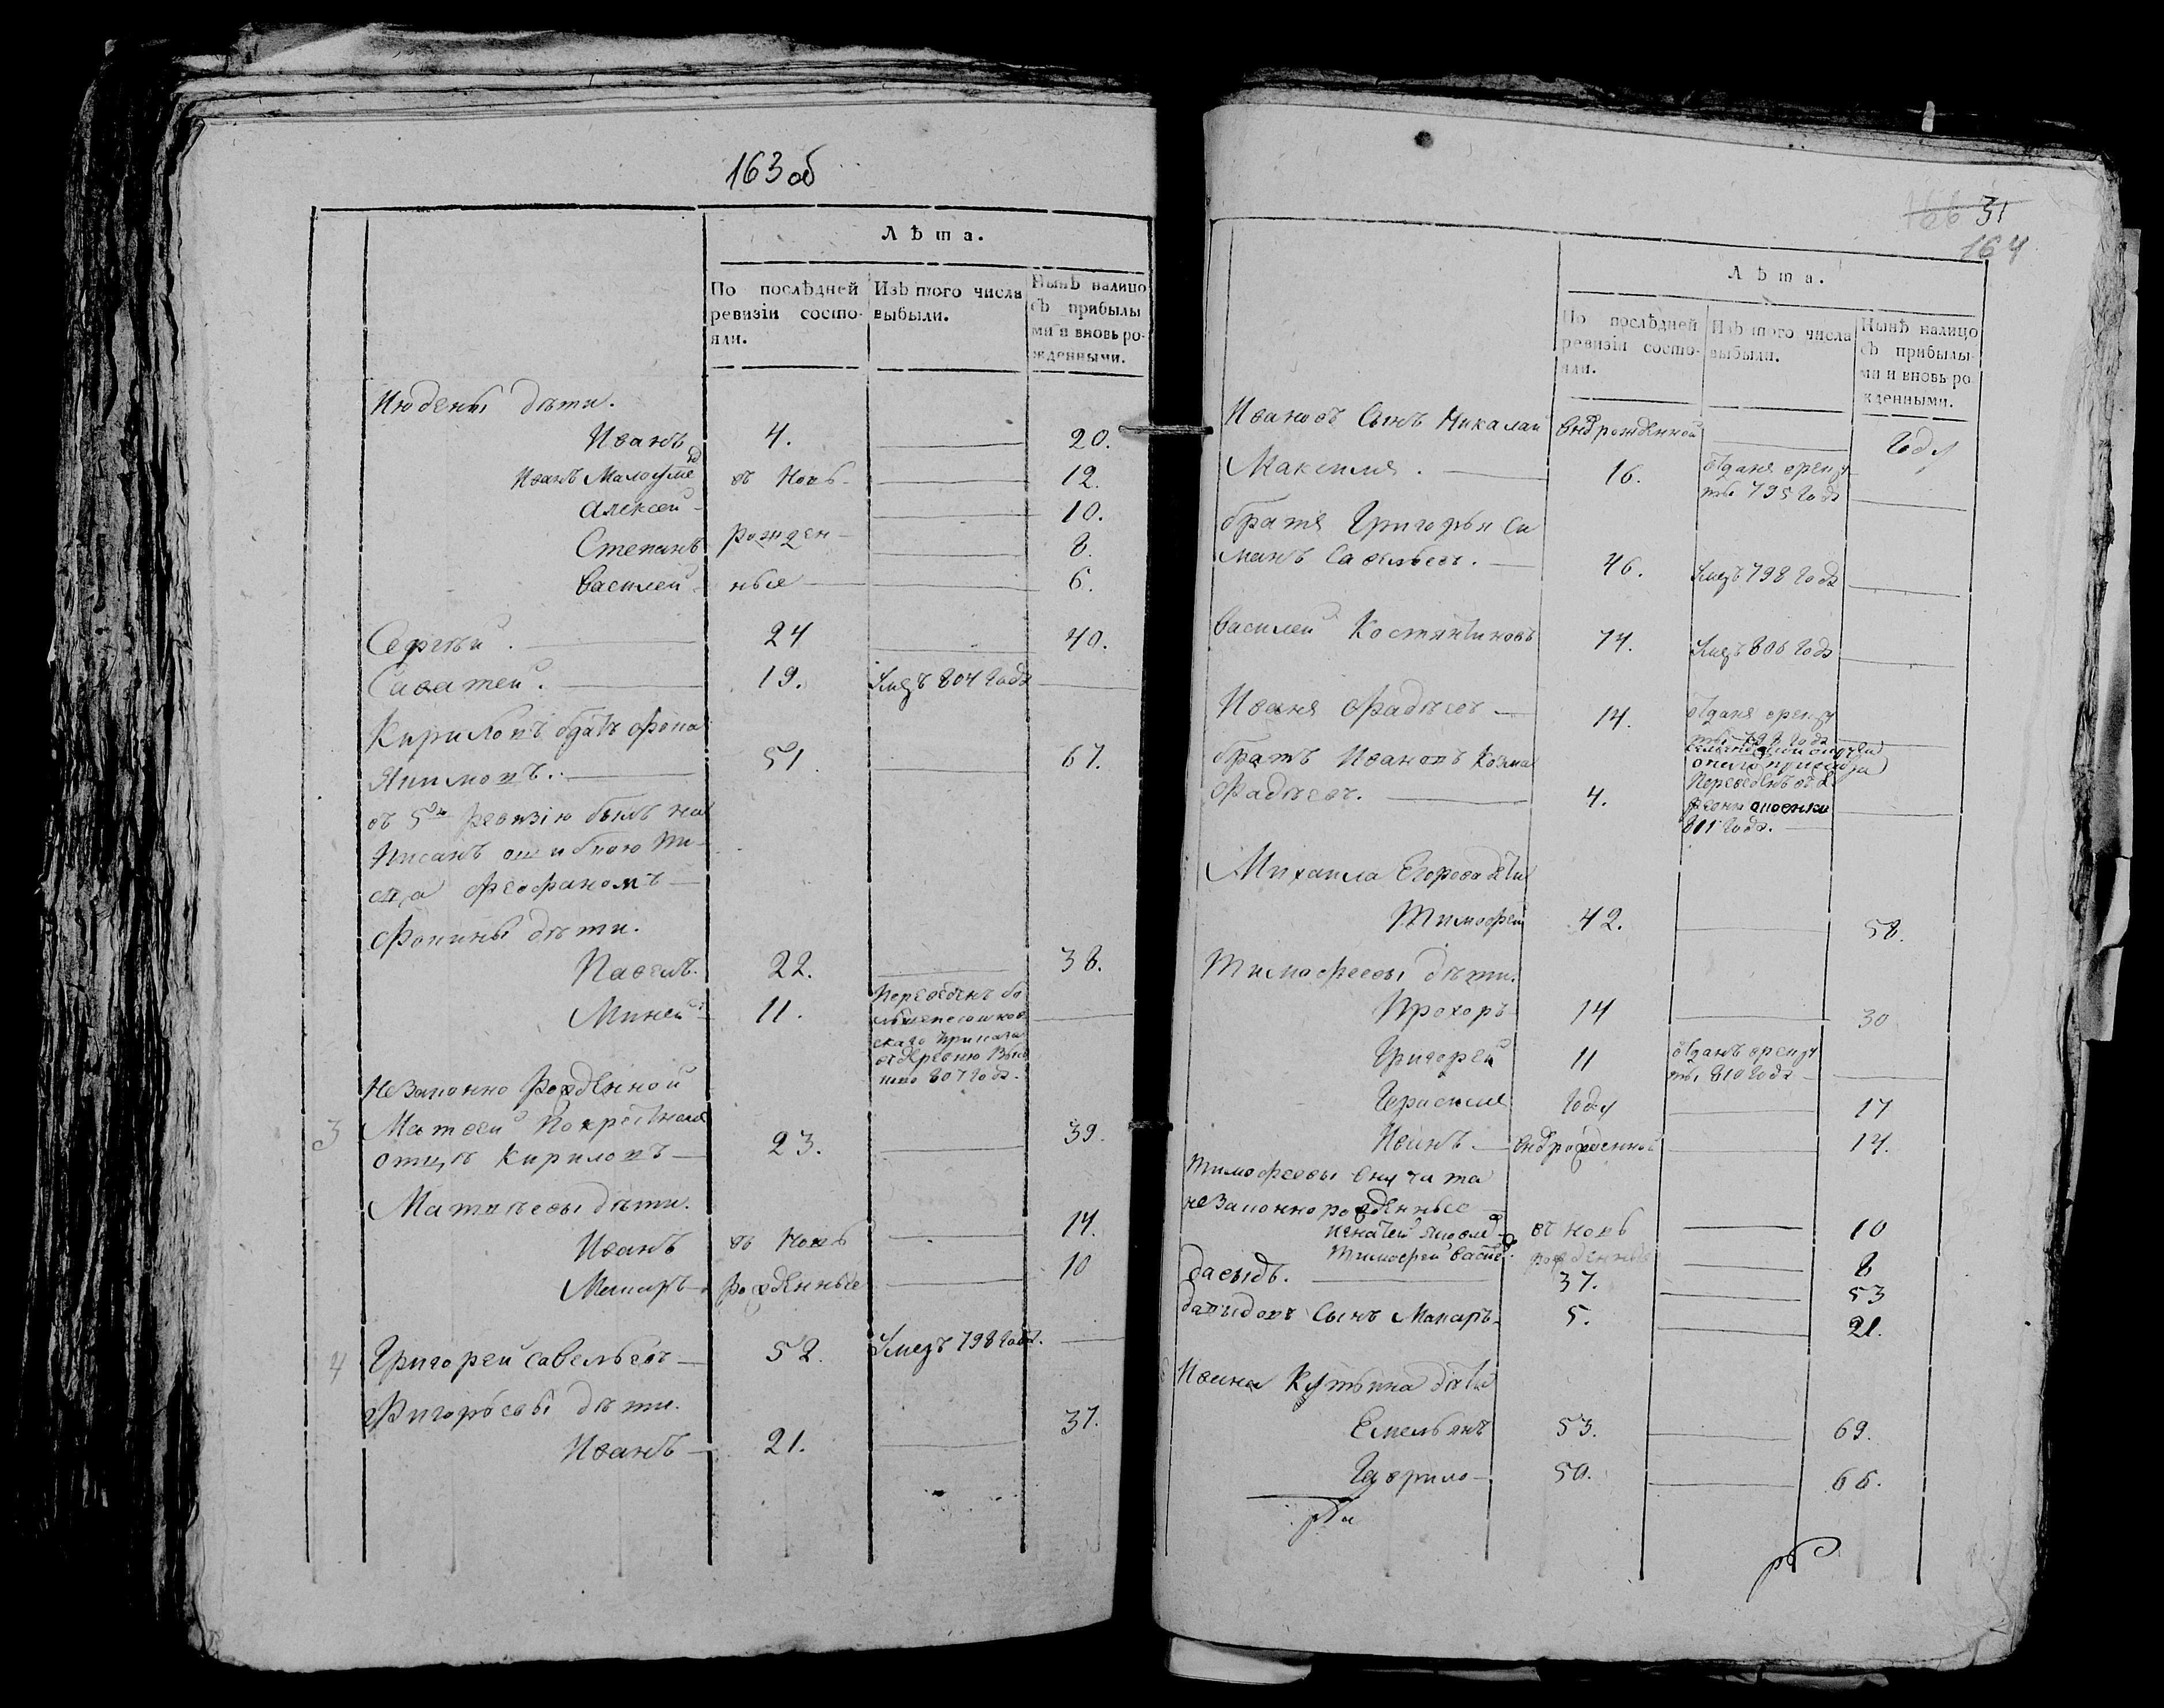 163об
Лѣта.
По послѣдней ревизіи состо-яли.
Изъ того числа выбыли.
Нынѣ налицо съ прибылы-ми и вновь ро-жденными.
Июдены дѣти.
Иванъ 4. 20.
Иванъ въ новь 12.
Алексей 10.
Степанъ рожден- 8.
Василей ные 6.
Сергѣй. 24 40.
Саватей. 19. Умеръ 804 года
Кириловъ братъ Фока
Якимовъ. 51. 67.
въ 5ю ревизію былъ на
писанъ ошибкою пи-
сца Феофаномъ
Фокины дѣти.
Павелъ. 22. 38.
Миней 11. Переведенъ
807 года.
Незаконно рожденной
3 Матвей по крестном
отцѣ Кириловъ 23. 39.
Матвѣевы дѣти.
Иванъ въ новь 14.
Макаръ рожденные 10
4 Григорей Савельевъ 52. Умеръ 798 года.
Григорьевы дѣти.
Иванъ 21. 37.
166 31
164
Лѣта.
По послѣдней ревизіи состо-яли.
Изъ того числа выбыли.
Нынѣ налицо съ прибылы-ми и вновь ро-жденными.
Ивановъ сынъ Никалай внврожденной году
Максимъ. 16. отданъ в рекру
ты 795 года
братъ Григорья Си
манъ Савельевъ. 46. Умеръ 798 года
Василей Костянтиновъ 74. Умеръ 806 года
Иванъ Фадѣевъ 14. отданъ в рекру
ты года
братъ Ивановъ Козма
Фадѣевъ. 4. Переведенъ
801 года.
Михаила Егорова дѣти
Тимофей 42. 58.
Тимофеевы дѣти.
Прохоръ 14 30
Григорей 11 отданъ в рекру
ты 810 года
Герасимъ году 17
Иванъ внврожденной 14.
Тимофеевы внучата
незаконно рожденные
въ новь 10
Тимофей рожденные 8
Давыдъ. 37. 53
Давыдовъ сынъ Макаръ 5. 21.
Ивина дѣти
Емельянъ 53. 69.
Гаврило 50. 66.